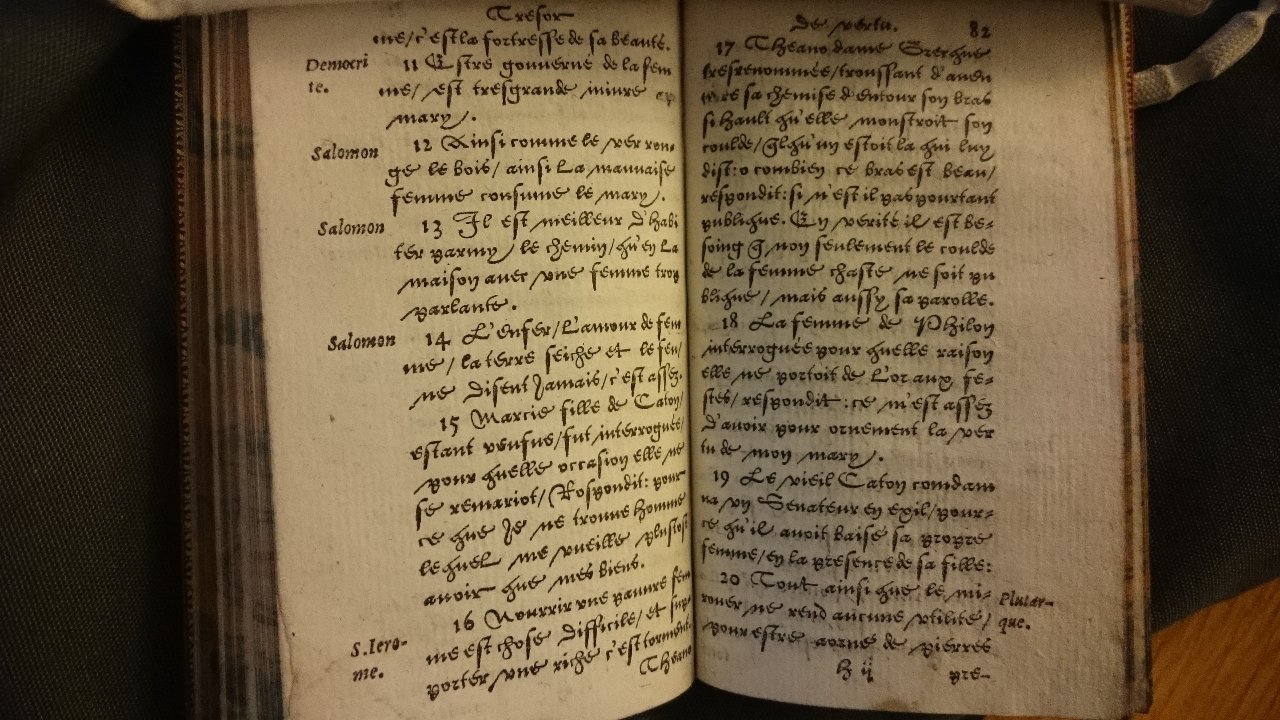 Tresor
me/c'est la fortresse de sa beauté.
Democri
te.
11 Estre gouverné de la fem
me/ est tresgrande iniure
mary.
Salomon
12 Ainsi comme le ver ron-
ge le bois/ ainsi la mauvaise
femme consume le mary.
Salomon
13 Il est meilleur d'habi
ter parmy le chemin/qu'en la
maison avec vne femme trop
parlante.
Salomon
14 L'enfer/L'amour de fem
me/ la terre seiche et le feu/
ne disent jamais/c'est assez.
15 Marcie fille de Caton/
estant veufue/fut interroguée/
pour quelle occasion elle ne
se remariot/Respondit: pour
ce que Je ne trouue homme
lequel me vueille plustost
auoir que mes biens.
S. Iero-
me.
16 Nourrir vne pauure fem
me est chose difficile/et sup-
porter vne riche c'est torment.
Theano
De vertu. 82
17 Theano dame Grecque
tresrenommée/troussant d'auen
sa chemise d'entour son bras
si hault qu'elle monstroit son
coulde/q̃lqu'un estoit la qui luy
dist: o combien ce bras est beau/
respondit: si n'est il pas pourtant
publique. En verité il est be-
soing q̃ non seulement le coulde
de la femme chaste ne soit pu
blique/ mais aussy sa parolle.
18 La femme de Philon
interroguée pour quelle raison
elle ne portoit de L'or aux fe-
stes/ respondit: ce m'est assez
d'auoir pour ornement la ver
tu de mon mary.
19 Le vieil Caton comdam
na vn Senateur en exil/pour-
ce qu'il auoit baisé sa propre
femme/en la presence de sa fille:
Plutar-
que.
20 Tout ainsi que le mi-
roner ne rend aucune vtilité/
pour estre aorné de pierres
h ij pre-